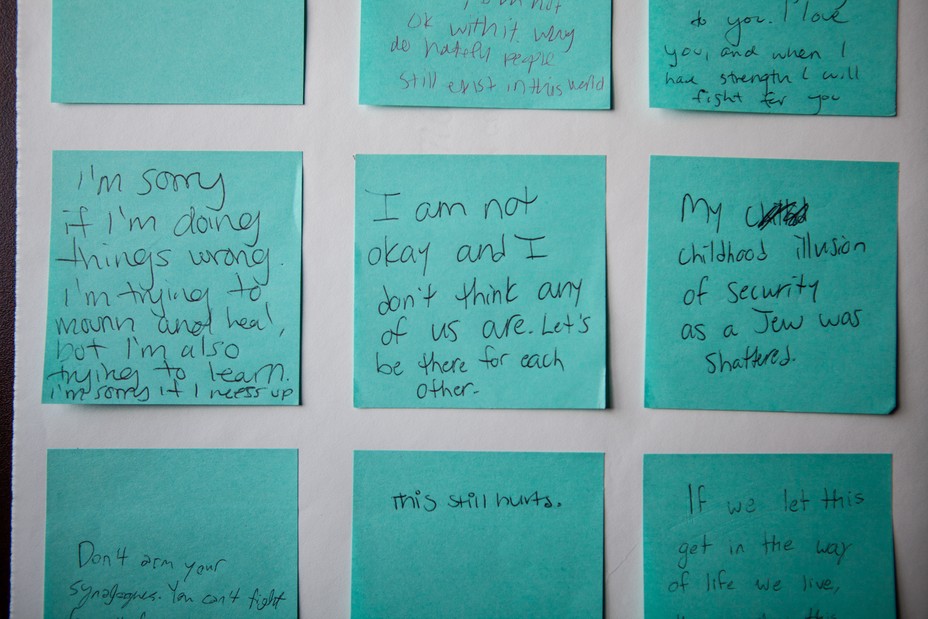 not
ok with it. Why
do hateful people
still exist in this world
to you. I love
you, and when I
have strength I will
fight for you
I'm sorry
if I'm doing
things wrong.
I'm trying to
mourn and heal,
but I'm also
trying to learn.
I'm sorry if I mess up
I am not
okay and I
don't think any
of us are. Let's
be there for each
other.
My
childhood illusion
of security
as a Jew was
shattered.
Don't arm your
synagogues. You can't fight
This still hurts.
If we let this
get in the way
of life we live,